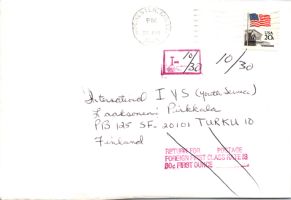 PM
USA
20c
I-10/30
10/30
International I Y S (Youth Service)
Laaksonen Pirkkala
PB 125 SF-20101 TURKU 10
Finland
RETURN FOR POSTAGE
FOREIGN FIRST CLASS RATE IS
FIRST OUNCE